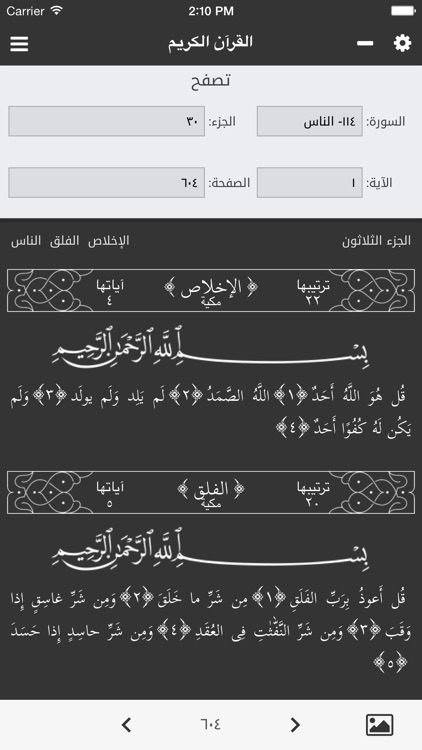 Carrier 2:10 PM
القرآن الكريم
تصفح
السورة: ١١٤- الناس الجزء: ٣٠
الآية: ١ الصفحة: ٦٠٤
الجزء الثلاثون الإخلاص الفلق الناس
ترتيبها ٢٢ ﴿ الإخلاص ﴾ مكية آياتها ٤
بِسْمِ اللَّهِ الرَّحْمَٰنِ الرَّحِيمِ
قُل هُوَ اللَّهُ أَحَدٌ ﴿١﴾ اللَّهُ الصَّمَدُ ﴿٢﴾ لَم يَلِد وَلَم يولَد ﴿٣﴾ وَلَم
يَكُن لَهُ كُفُوًا أَحَدٌ ﴿٤﴾
ترتيبها ٢٠ ﴿ الفلق ﴾ مكية آياتها ٥
بِسْمِ اللَّهِ الرَّحْمَٰنِ الرَّحِيمِ
قُل أَعوذُ بِرَبِّ الفَلَقِ ﴿١﴾ مِن شَرِّ ما خَلَقَ ﴿٢﴾ وَمِن شَرِّ غاسِقٍ إِذا
وَقَبَ ﴿٣﴾ وَمِن شَرِّ النَّفّٰثٰتِ فِى العُقَدِ ﴿٤﴾ وَمِن شَرِّ حاسِدٍ إِذا حَسَدَ
﴿٥﴾
٦٠٤